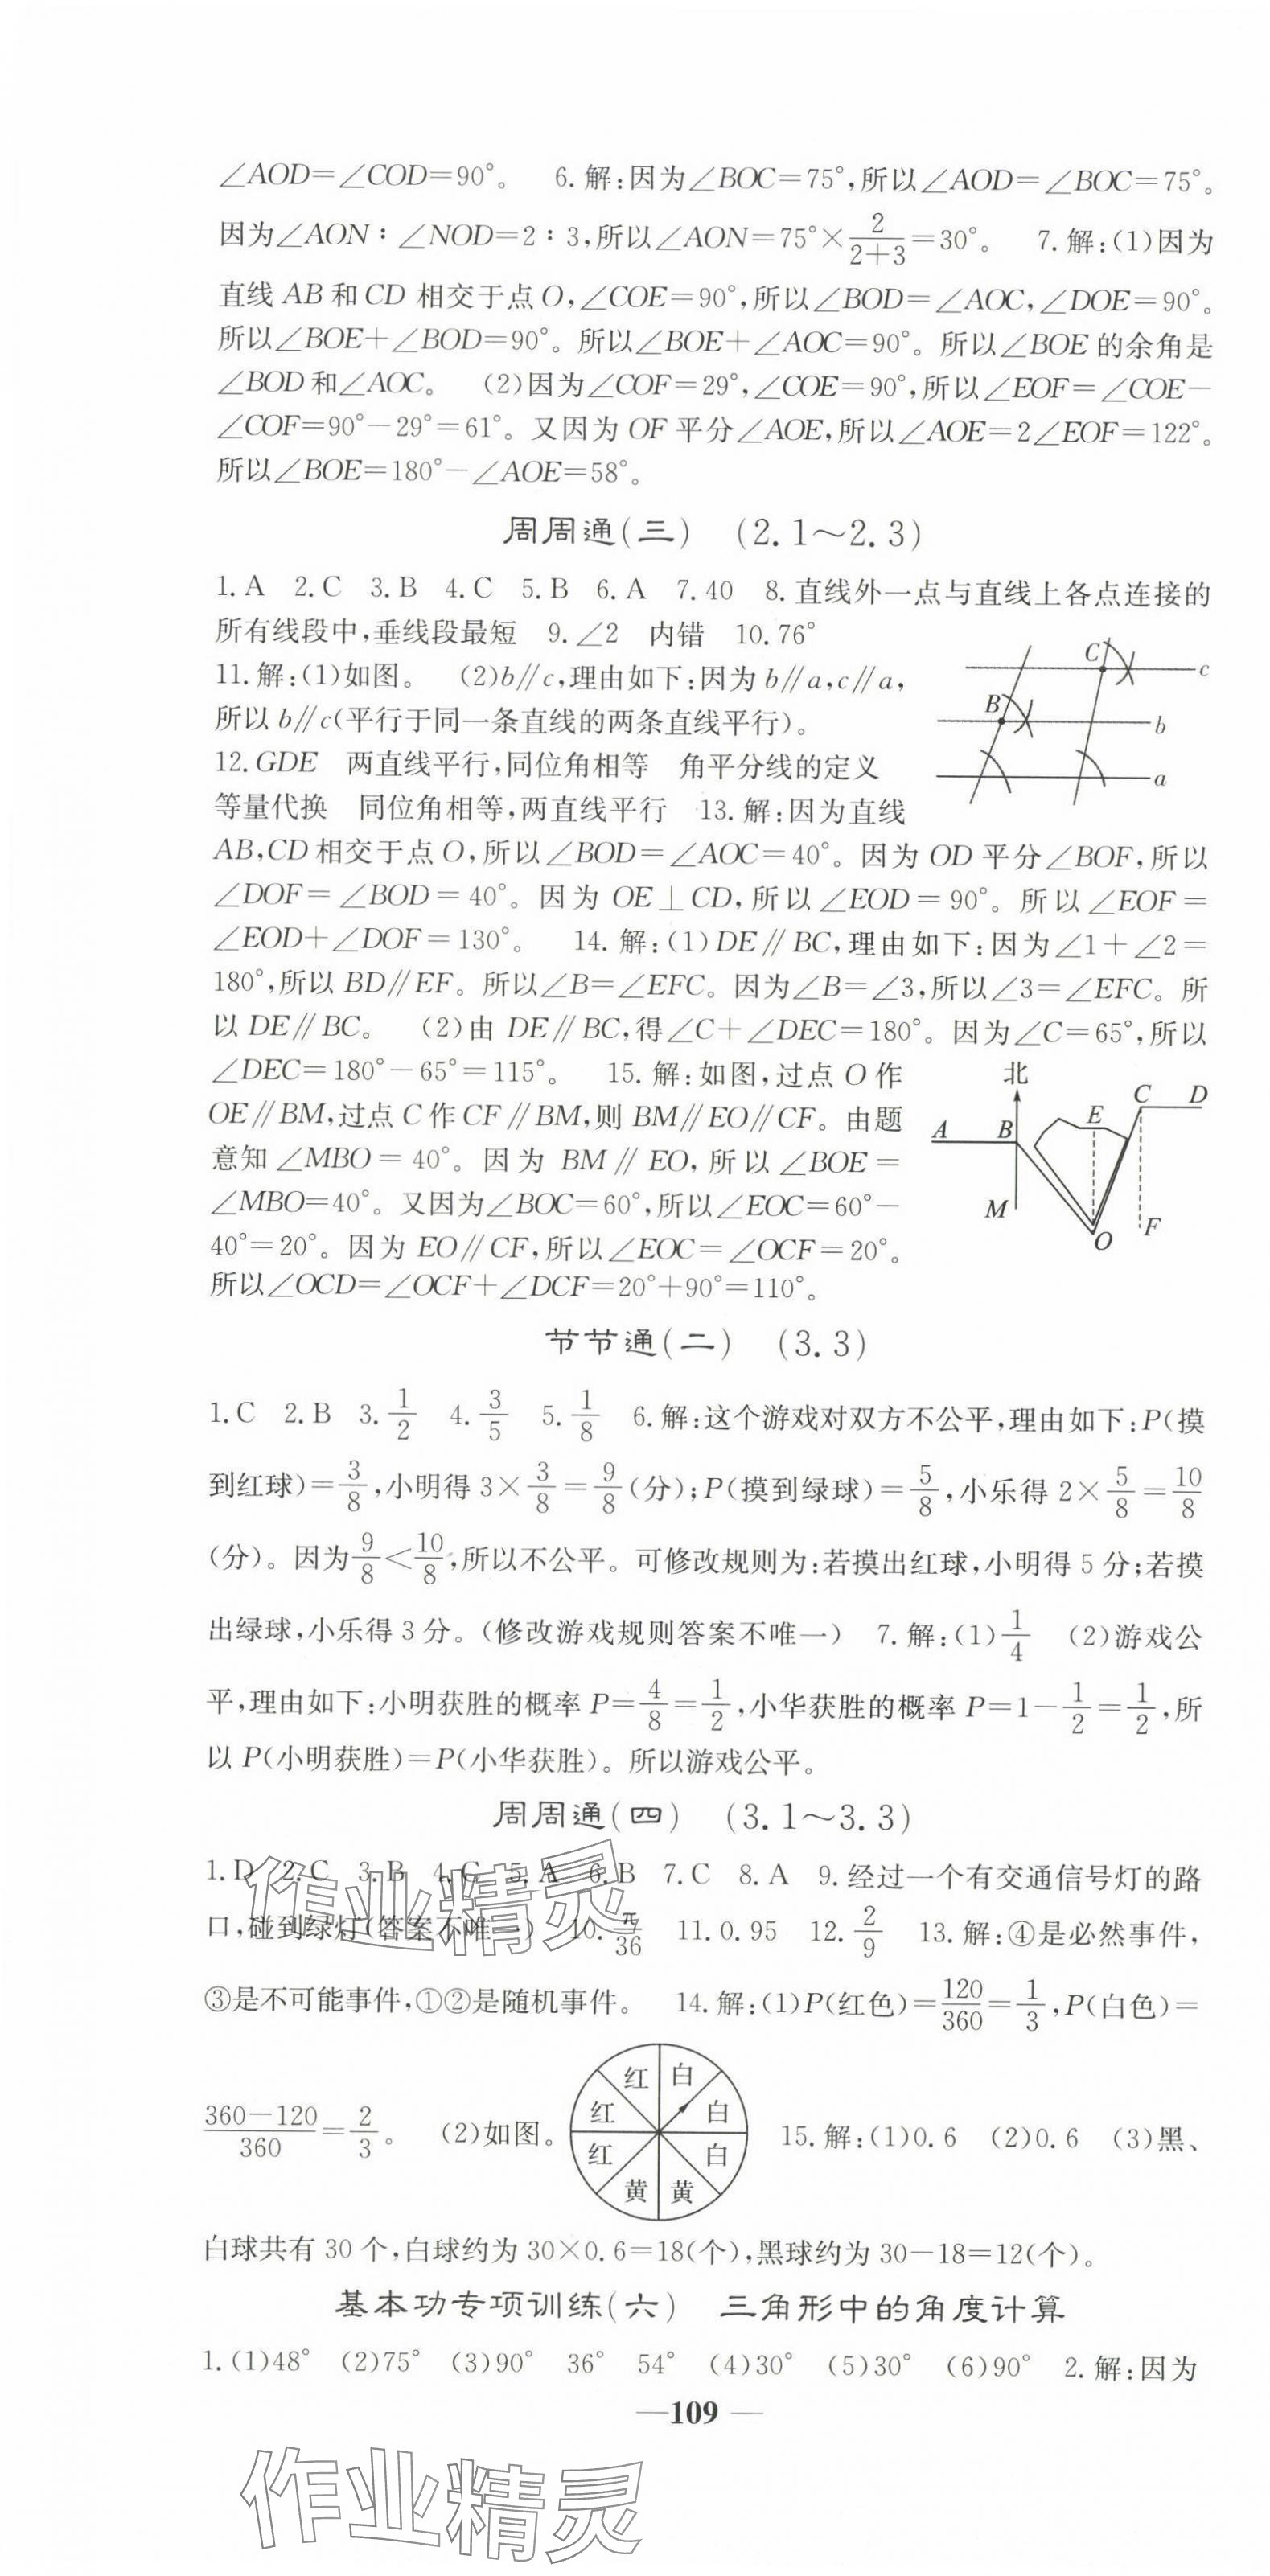 ∠AOD=∠COD=90°。 6.解:因为∠BOC=75°,所以∠AOD=∠BOC=75°。
因为∠AON∶∠NOD=2∶3,所以∠AON=75°×2/(2+3)=30°。 7.解:(1)因为
直线AB和CD相交于点O,∠COE=90°,所以∠BOD=∠AOC,∠DOE=90°。
所以∠BOE+∠BOD=90°。所以∠BOE+∠AOC=90°。所以∠BOE的余角是
∠BOD和∠AOC。 (2)因为∠COF=29°,∠COE=90°,所以∠EOF=∠COE-
∠COF=90°-29°=61°。又因为OF平分∠AOE,所以∠AOE=2∠EOF=122°。
所以∠BOE=180°-∠AOE=58°。
周周通(三) (2.1~2.3)
1.A 2.C 3.B 4.C 5.B 6.A 7.40 8.直线外一点与直线上各点连接的
所有线段中,垂线段最短 9.∠2 内错 10.76°
11.解:(1)如图。 (2)b∥c,理由如下:因为b∥a,c∥a,
所以b∥c(平行于同一条直线的两条直线平行)。
C c
B b
a
12.GDE 两直线平行,同位角相等 角平分线的定义
等量代换 同位角相等,两直线平行 13.解:因为直线
AB,CD相交于点O,所以∠BOD=∠AOC=40°。因为OD平分∠BOF,所以
∠DOF=∠BOD=40°。因为OE⊥CD,所以∠EOD=90°。所以∠EOF=
∠EOD+∠DOF=130°。 14.解:(1)DE∥BC,理由如下:因为∠1+∠2=
180°,所以BD∥EF。所以∠B=∠EFC。因为∠B=∠3,所以∠3=∠EFC。所
以DE∥BC。 (2)由DE∥BC,得∠C+∠DEC=180°。因为∠C=65°,所以
∠DEC=180°-65°=115°。 15.解:如图,过点O作
OE∥BM,过点C作CF∥BM,则BM∥EO∥CF。由题
意知∠MBO=40°。因为BM∥EO,所以∠BOE=
∠MBO=40°。又因为∠BOC=60°,所以∠EOC=60°-
40°=20°。因为EO∥CF,所以∠EOC=∠OCF=20°。
所以∠OCD=∠OCF+∠DCF=20°+90°=110°。
北
C D
A B E
M F
O
节节通(二) (3.3)
1.C 2.B 3.1/2 4.3/5 5.1/8 6.解:这个游戏对双方不公平,理由如下:P(摸
到红球)=3/8,小明得3×3/8=9/8(分);P(摸到绿球)=5/8,小乐得2×5/8=10/8
(分)。因为9/8<10/8,所以不公平。可修改规则为:若摸出红球,小明得5分;若摸
出绿球,小乐得3分。(修改游戏规则答案不唯一) 7.解:(1)1/4 (2)游戏公
平,理由如下:小明获胜的概率P=4/8=1/2,小华获胜的概率P=1-1/2=1/2,所
以P(小明获胜)=P(小华获胜)。所以游戏公平。
周周通(四) (3.1~3.3)
1.D 2.C 3.B 4.C 5.A 6.B 7.C 8.A 9.经过一个有交通信号灯的路
口,碰到绿灯(答案不唯一) 10.π/36 11.0.95 12.2/9 13.解:④是必然事件,
③是不可能事件,①②是随机事件。 14.解:(1)P(红色)=120/360=1/3,P(白色)=
(360-120)/360=2/3。 (2)如图。 15.解:(1)0.6 (2)0.6 (3)黑、
红 白
红 白
红 白
黄 黄
白球共有30个,白球约为30×0.6=18(个),黑球约为30-18=12(个)。
基本功专项训练(六) 三角形中的角度计算
1.(1)48° (2)75° (3)90° 36° 54° (4)30° (5)30° (6)90° 2.解:因为
—109—
作业精灵
作业精灵